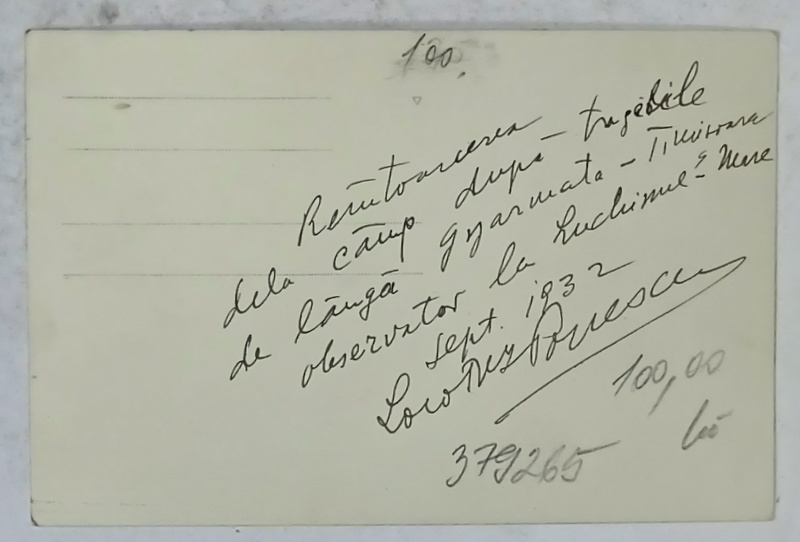 100.
Reîntoarcerea
dela câmp după tragerile
de lângă Gyarmata - Timișoara
observator la
Mare
Sept. 1932
Popescu
100,00
379265